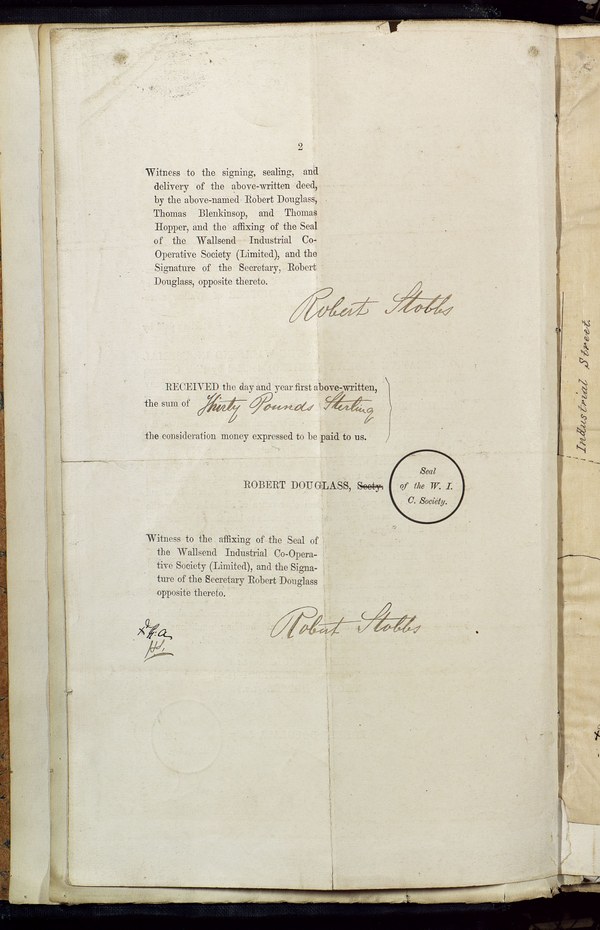 2
Witness to the signing, sealing, and
delivery of the above-written deed,
by the above-named Robert Douglass,
Thomas Blenkinsop, and Thomas
Hopper, and the affixing of the Seal
of the Wallsend Industrial Co-
Operative Society (Limited), and the
Signature of the Secretary, Robert
Douglass, opposite thereto.
Robert Stobbs
RECEIVED the day and year first above-written,
the sum of Thirty Pounds Sterling
the consideration money expressed to be paid to us.
ROBERT DOUGLASS, Secty.
Seal
of the W. I.
C. Society.
Witness to the affixing of the Seal of
the Wallsend Industrial Co-Opera-
tive Society (Limited), and the Signa-
ture of the Secretary Robert Douglass
opposite thereto.
Robert Stobbs
Industrial Street.